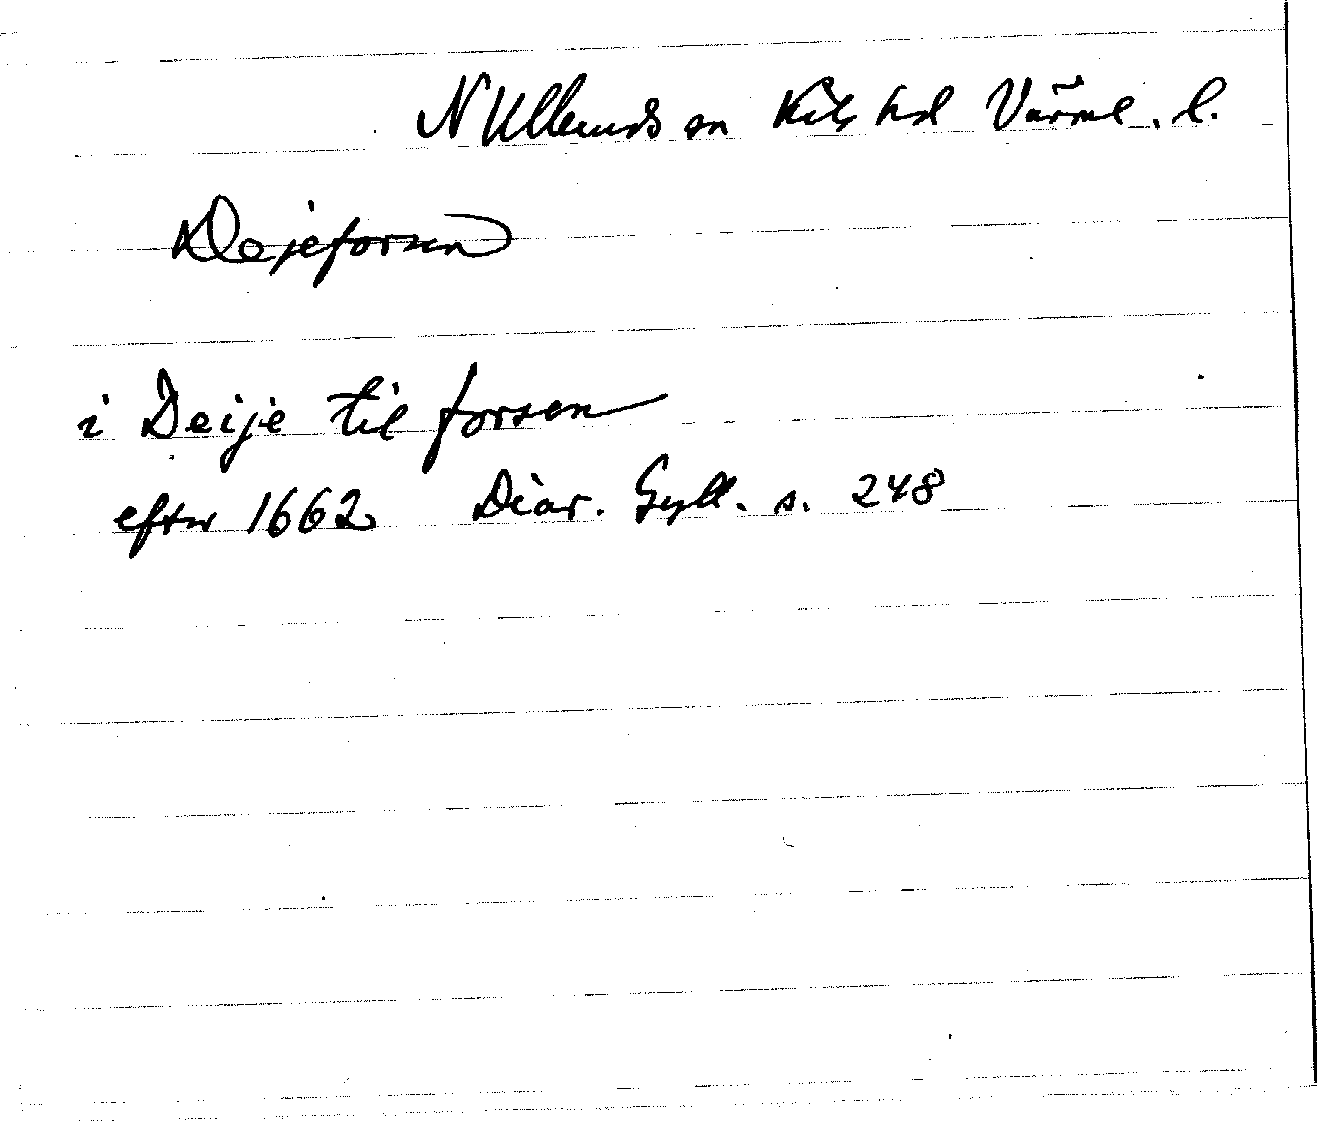 N Ullerud sn Kils hd Värml. l.
Dejeforsen
i Deije til forsen
efter 1662 Diar. Gyll. s. 248